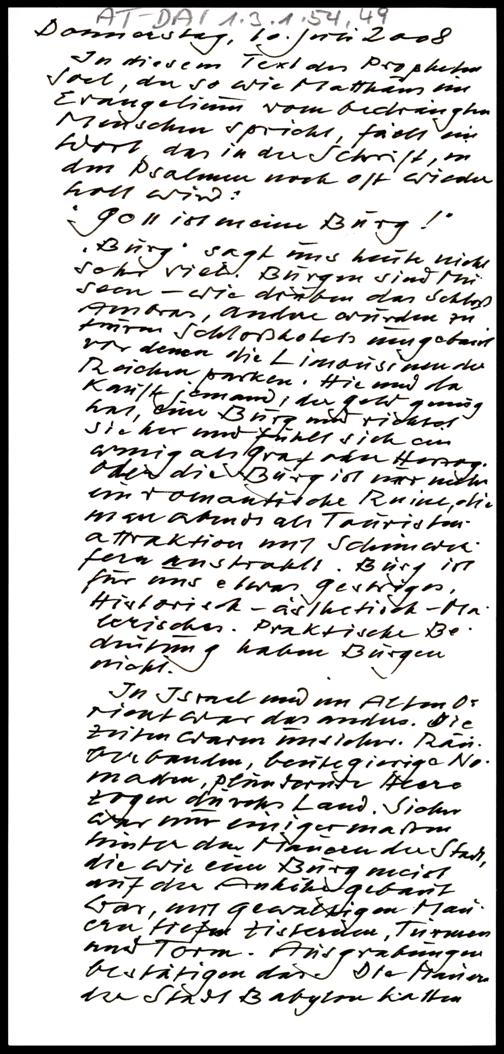 AT-DAI 1.3.1.54.49
Donnerstag, 10. Juli 2008
In diesem Text des Propheten
Joel, der so wie Matthäus im
Evangelium vom bedrängten
Menschen spricht, fällt ein
Wort das in der Schrift, in
den Psalmen noch oft wieder
holt wird:
"Gott ist meine Burg!"
"Burg" sagt uns heute nicht
sehr viel. Burgen sind Mu-
seen – wie drüben das Schloß
Ambras, andere wurden zu
teuren Schloßhotels umgebaut
vor denen die Limousinen der
Reichen parken. Hie und da
kauft jemand, der Geld genug
hat, eine Burg und richtet
sie her und fühlt sich ein
wenig als Graf oder Herzog.
Oder die Burg ist nur mehr
ein romantische Ruine, die
man abends als Touristen-
attraktion mit Scheinwer-
fern anstrahlt. Burg ist
für uns etwas Gestriges,
Historisch-ästhetisch-Ma-
lerisches. Praktische Be-
deutung haben Burgen
nicht.
In Israel und im Alten O-
rient war das anders. Die
Zeiten waren unsicher. Räu-
berbanden, beutegierige No-
maden, plündernde Heere
zogen durchs Land. Sicher
war nur einigermaßen
hinter den Mauern der Stadt,
die wie eine Burg meist
auf der Anhöhe gebaut
war, mit gewaltigen Mau-
ern tiefen Zisternen, Türmen
und Toren. Ausgrabungen
bestätigen das. Die Mauern
der Stadt Babylon hatten